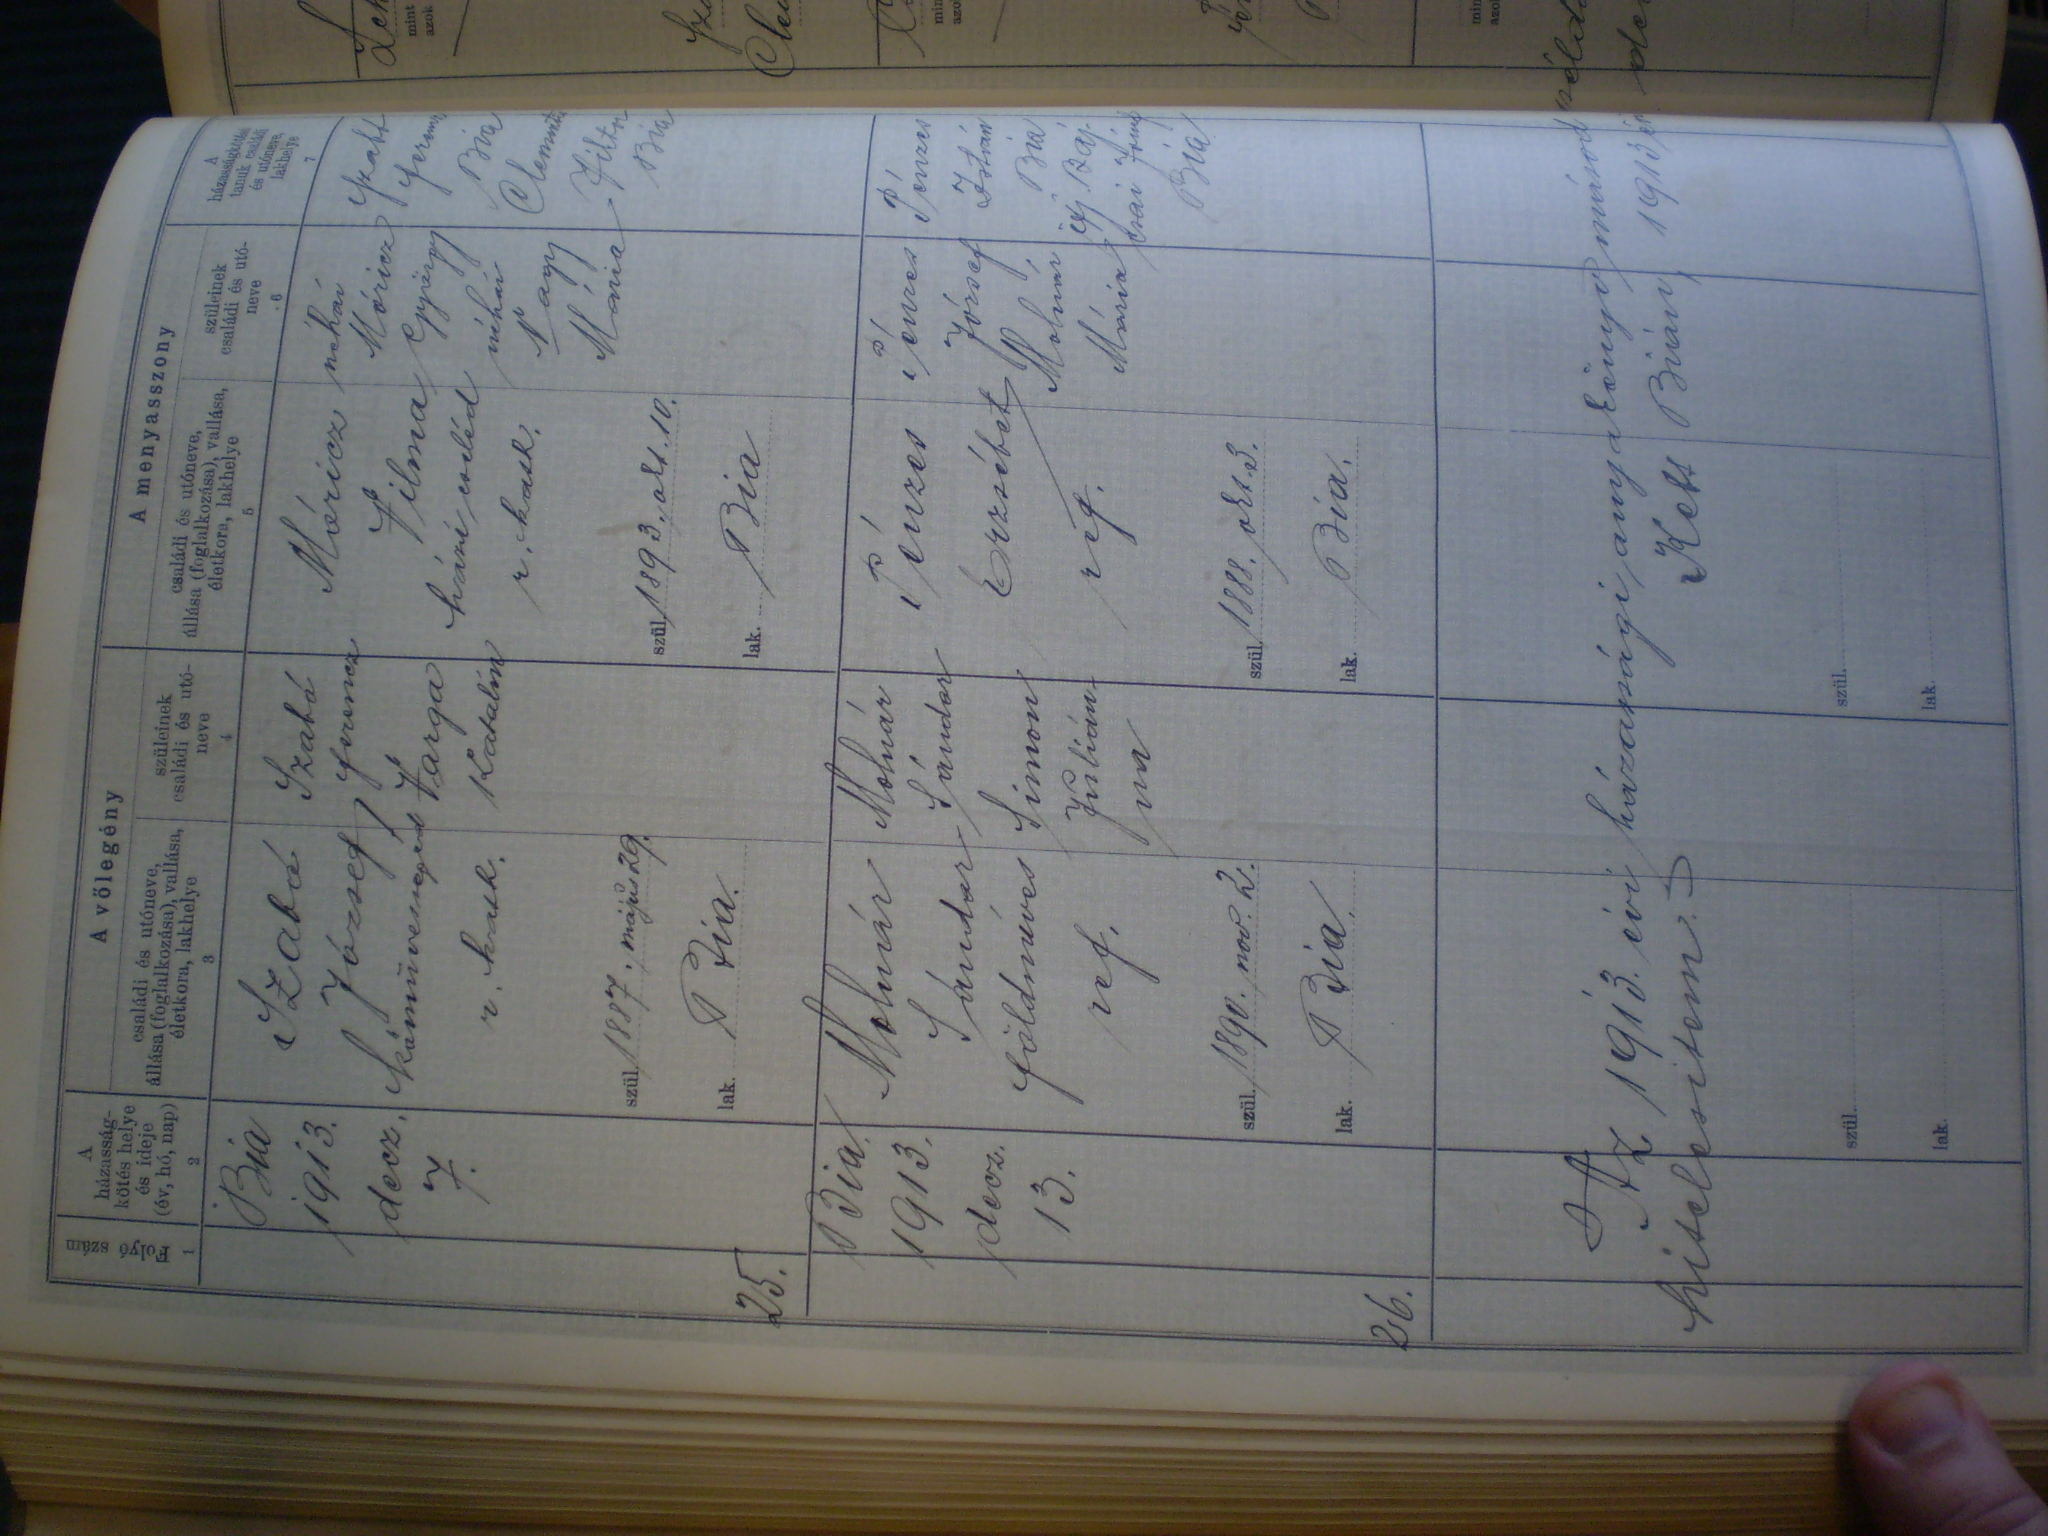 A vőlegény
A menyasszony
Folyó szám
A
házasság-
kötés helye
és ideje
(év, hó, nap)
családi és utóneve,
állása (foglalkozása), vallása,
életkora, lakhelye
szüleinek
családi és utó-
neve
családi és utóneve,
állása (foglalkozása), vallása,
életkora, lakhelye
szüleinek
családi és utó-
neve
A
házasságkötési
tanuk családi
és utóneve,
lakhelye
1
2
3
4
5
6
7
25.
Bia
1913.
decz.
7.
Szabó
József
kőművessegéd
r. kath.
szül. 1887. május 29.
lak. Bia.
Szabó
Ferencz
Varga
Katalin
Móricz
Vilma
házi cseléd
r. kath.
szül. 1893. okt. 10.
lak. Bia
néhai
Móricz
György
néhai
Nagy
Mária
Szabó
Ferencz
Bia
Bia
26.
Bia.
1913.
decz.
13.
Molnár
Sándor
földműves
ref.
szül. 1890. nov. 2.
lak. Bia.
Molnár
Sándor
Simon
Julián-
na
Pénzes
Erzsébet
ref.
szül. 1888. okt. 3.
lak. Bia.
Pénzes
József
Molnár
Mária
Pénzes
István
Bia
Bia
Az 1913. évi házassági anyakönyv másod
hitelesitem.
Kelt Bián, 1913
szül.
lak.
szül.
lak.
mint
azok